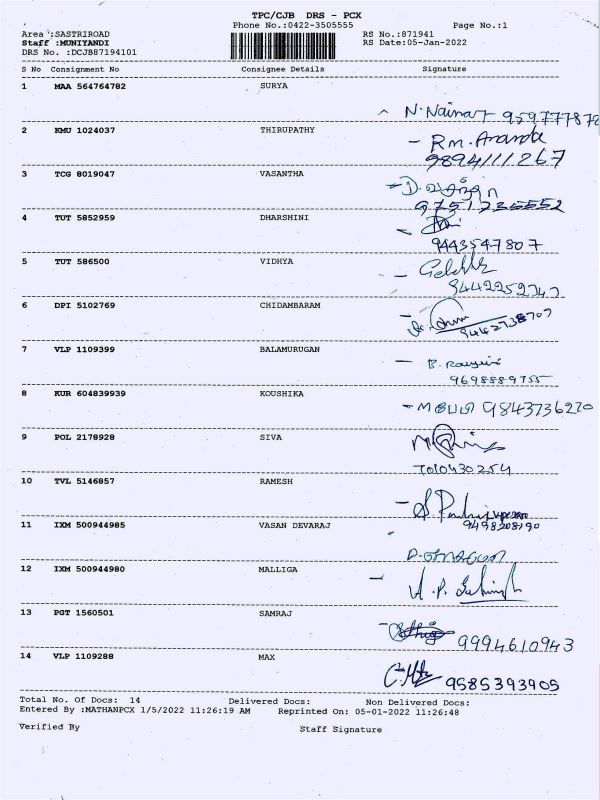 TPC/CJB DRS - PCX
Phone No.:0422-3505555 Page No.:1
Area :SASTRIROAD RS No.:871941
Staff :MUNIYANDI RS Date:05-Jan-2022
DRS No. :DCJB87194101
S No Consignment No Consignee Details Signature
1 MAA 564764782 SURYA
N. Nainar
2 KMU 1024037 THIRUPATHY
Rm. Ananda
9894111267
3 TCG 8019047 VASANTHA
9751235552
4 TUT 5852959 DHARSHINI
9443547807
5 TUT 586500 VIDHYA
6 DPI 5102769 CHIDAMBARAM
7 VLP 1109399 BALAMURUGAN
9698889755
8 KUR 604839939 KOUSHIKA
9843736220
9 POL 2178928 SIVA
7010430254
10 TVL 5146857 RAMESH
11 IXM 500944985 VASAN DEVARAJ
9498208190
12 IXM 500944980 MALLIGA
13 PGT 1560501 SAMRAJ
9994610943
14 VLP 1109288 MAX
9585393905
Total No. Of Docs: 14 Delivered Docs: Non Delivered Docs:
Entered By :MATHANPCX 1/5/2022 11:26:19 AM Reprinted On: 05-01-2022 11:26:48
Verified By Staff Signature